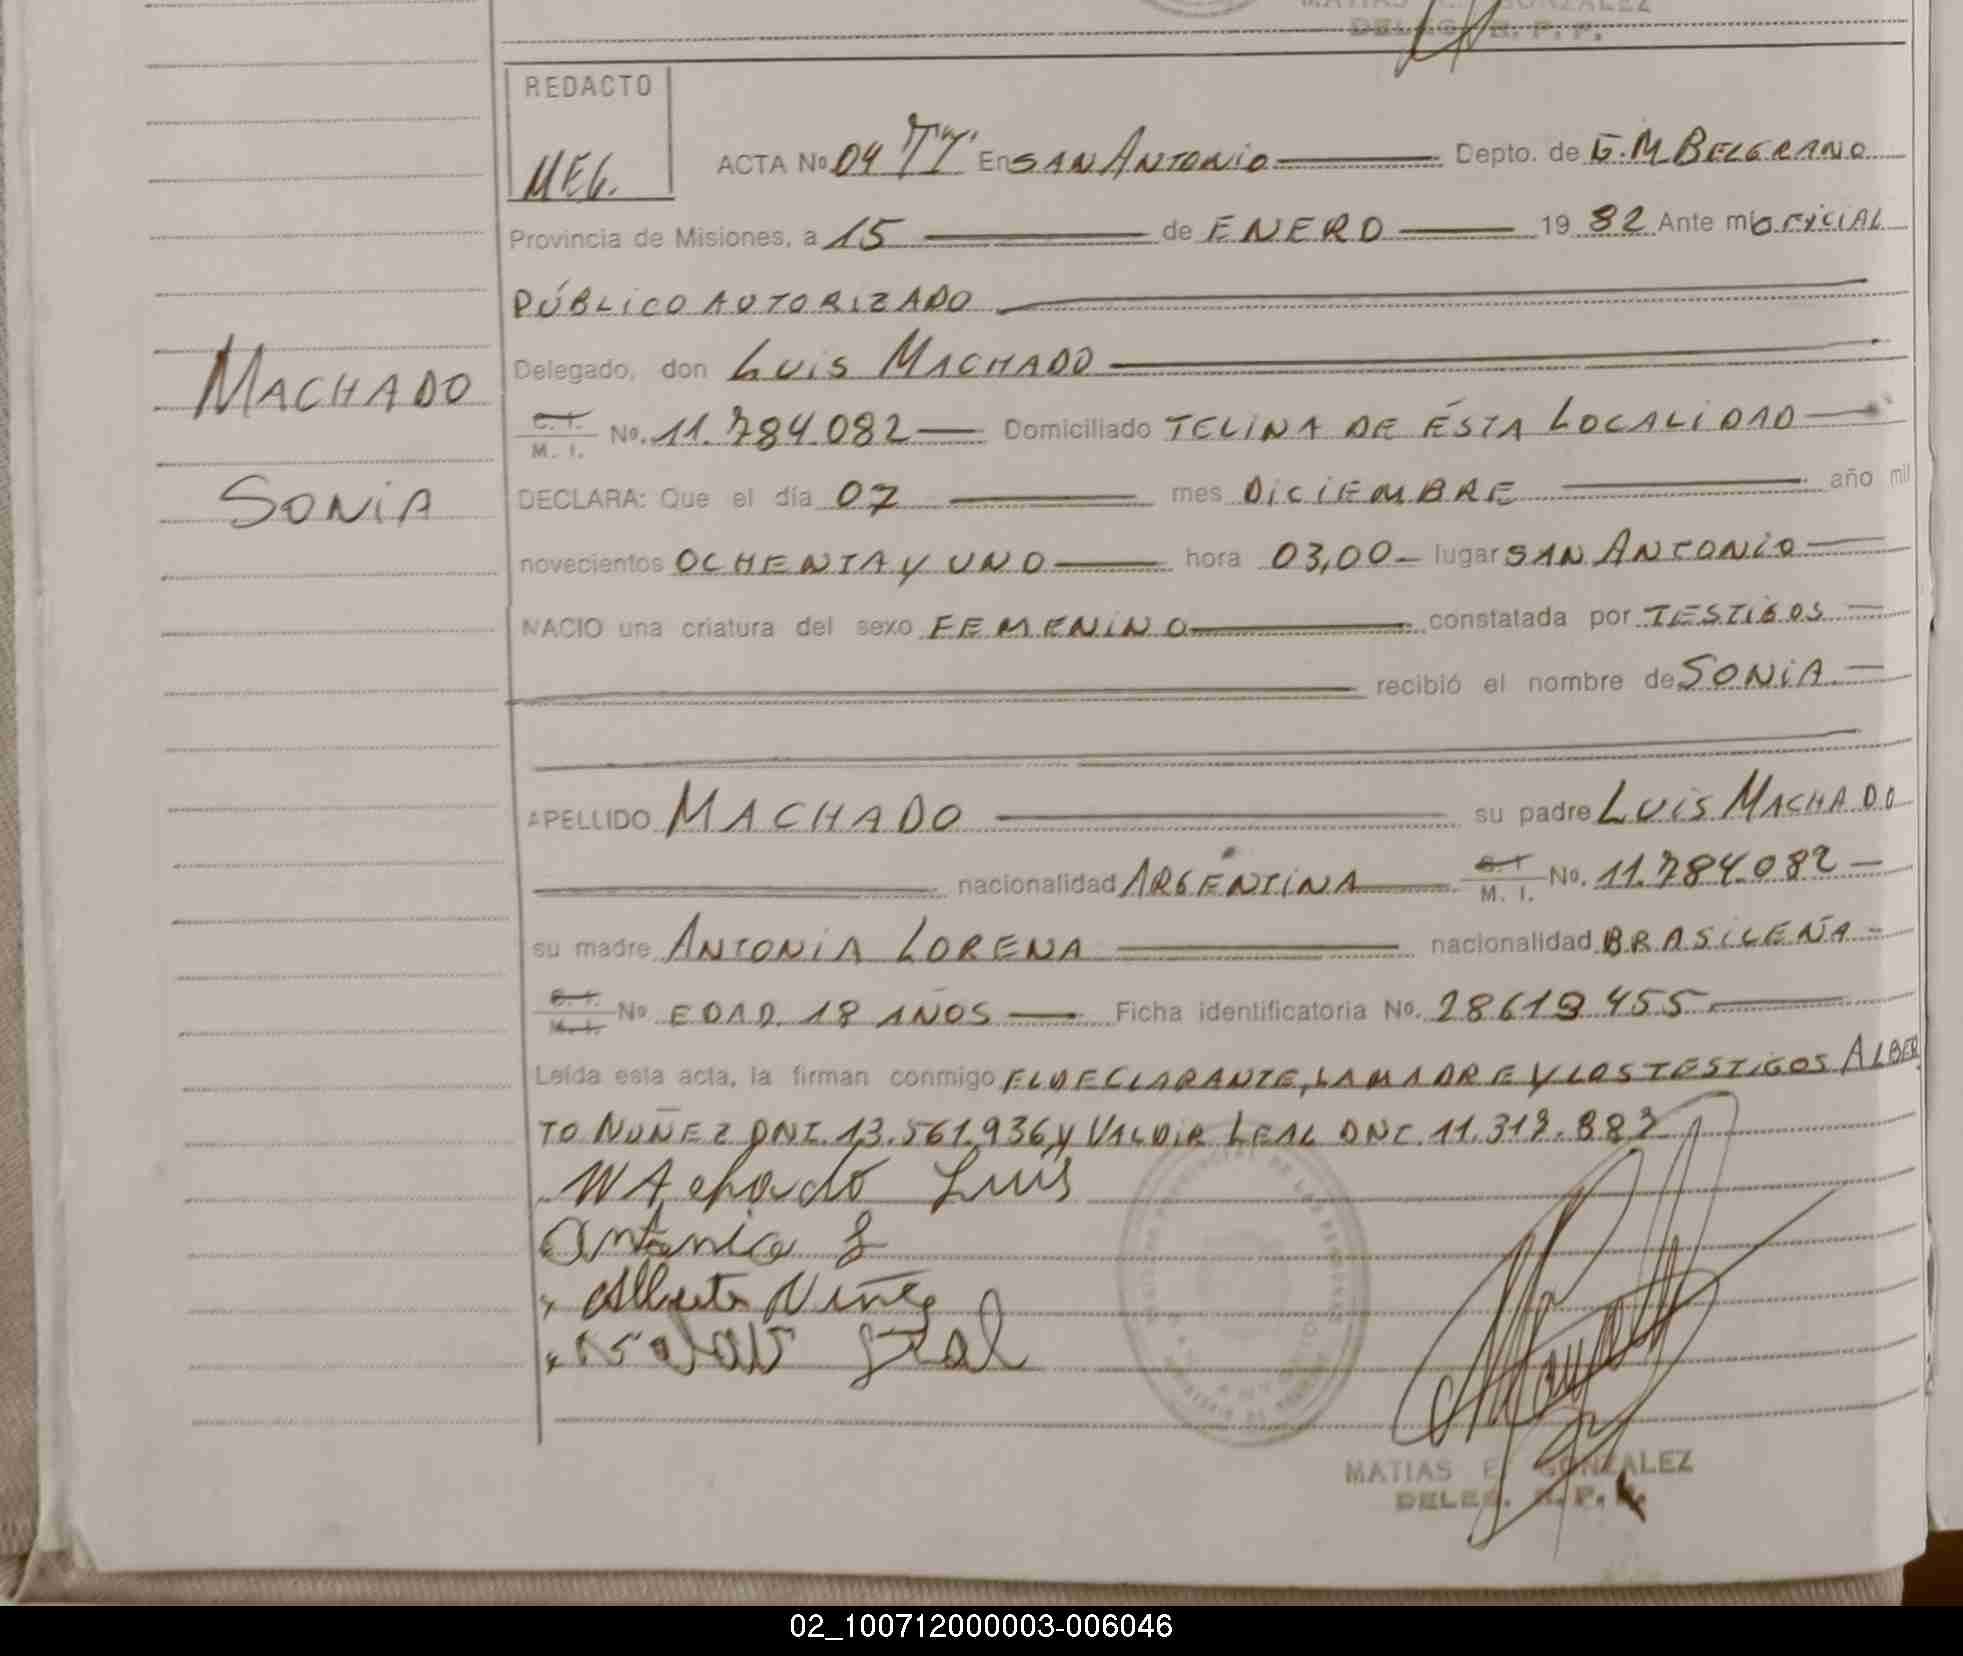 MATIAS E. GONZALEZ
DELEG. R. P. P.
REDACTO
MEG.
ACTA No 04 TT En SAN ANTONIO Depto. de G.M BELGRANO
Provincia de Misiones, a 15 de ENERO 1982 Ante mi OFICIAL
PÚBLICO AUTORIZADO
Delegado, don LUIS MACHADO
C. I. / M. I. No. 11.784.082 Domiciliado TELINA DE ÉSTA LOCALIDAD
MACHADO
SONIA
DECLARA: Que el día 07 mes DICIEMBRE año mil
novecientos OCHENTA Y UNO hora 03,00 lugar SAN ANTONIO
NACIO una criatura del sexo FEMENINO constatada por TESTIGOS
recibió el nombre de SONIA.
APELLIDO MACHADO su padre LUIS MACHADO
nacionalidad ARGENTINA C. I / M. I. No. 11.784.082
su madre ANTONIA LORENA nacionalidad BRASILEÑA
C. I. / M. I. No EDAD. 18 AÑOS Ficha identificatoria No. 28619455
Leída esta acta, la firman conmigo EL DECLARANTE, LA MADRE Y LOS TESTIGOS ALBER
TO NUÑEZ DNI. 13.561.936 Y VALDIR LEAL DNI. 11.319.883
MAchado Luis
Antonia L
Alberto Nuñez
Leal
MATIAS E. GONZALEZ
DELEG. R. P.
02_100712000003-006046